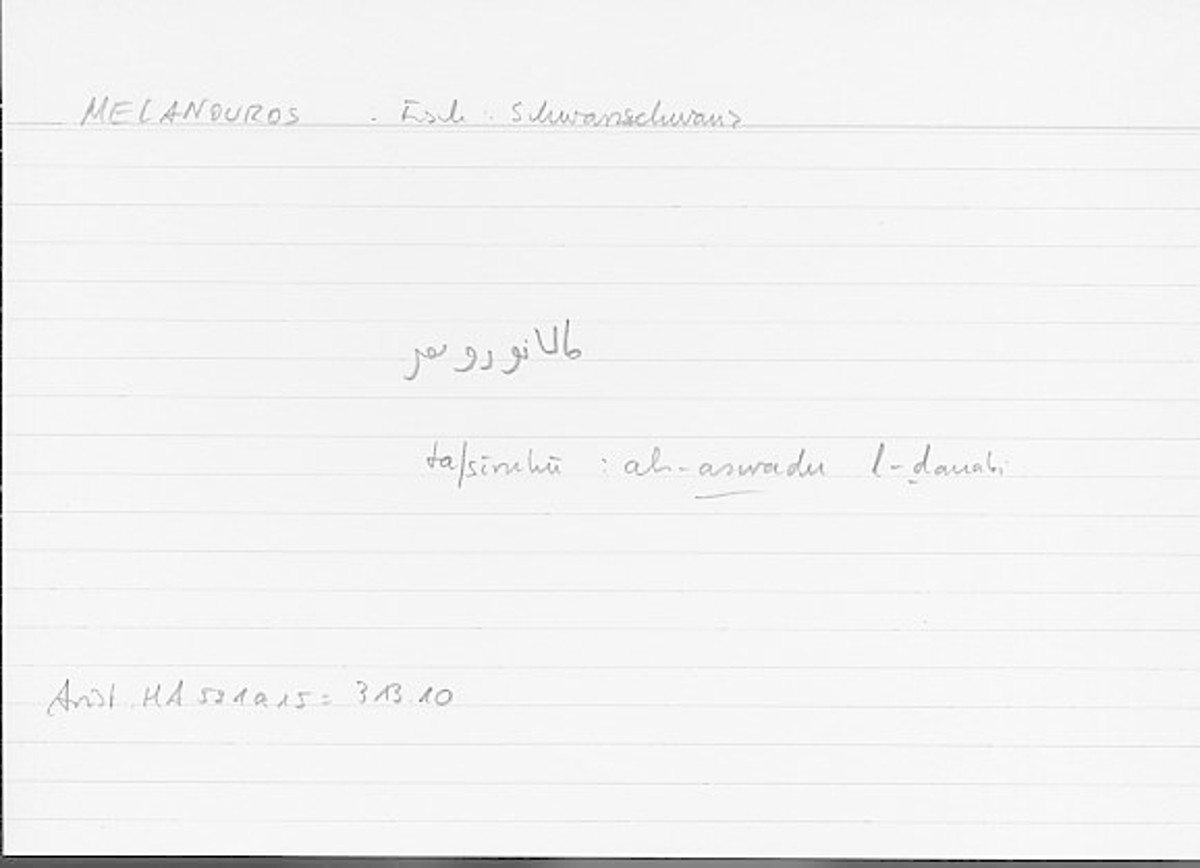 MELANOUROS . Fisch : Schwarzschwanz
مالانوروس
tafsīruhū : al-aswadu l-ḏanabi
Arist. HA 591a15 = 313.10